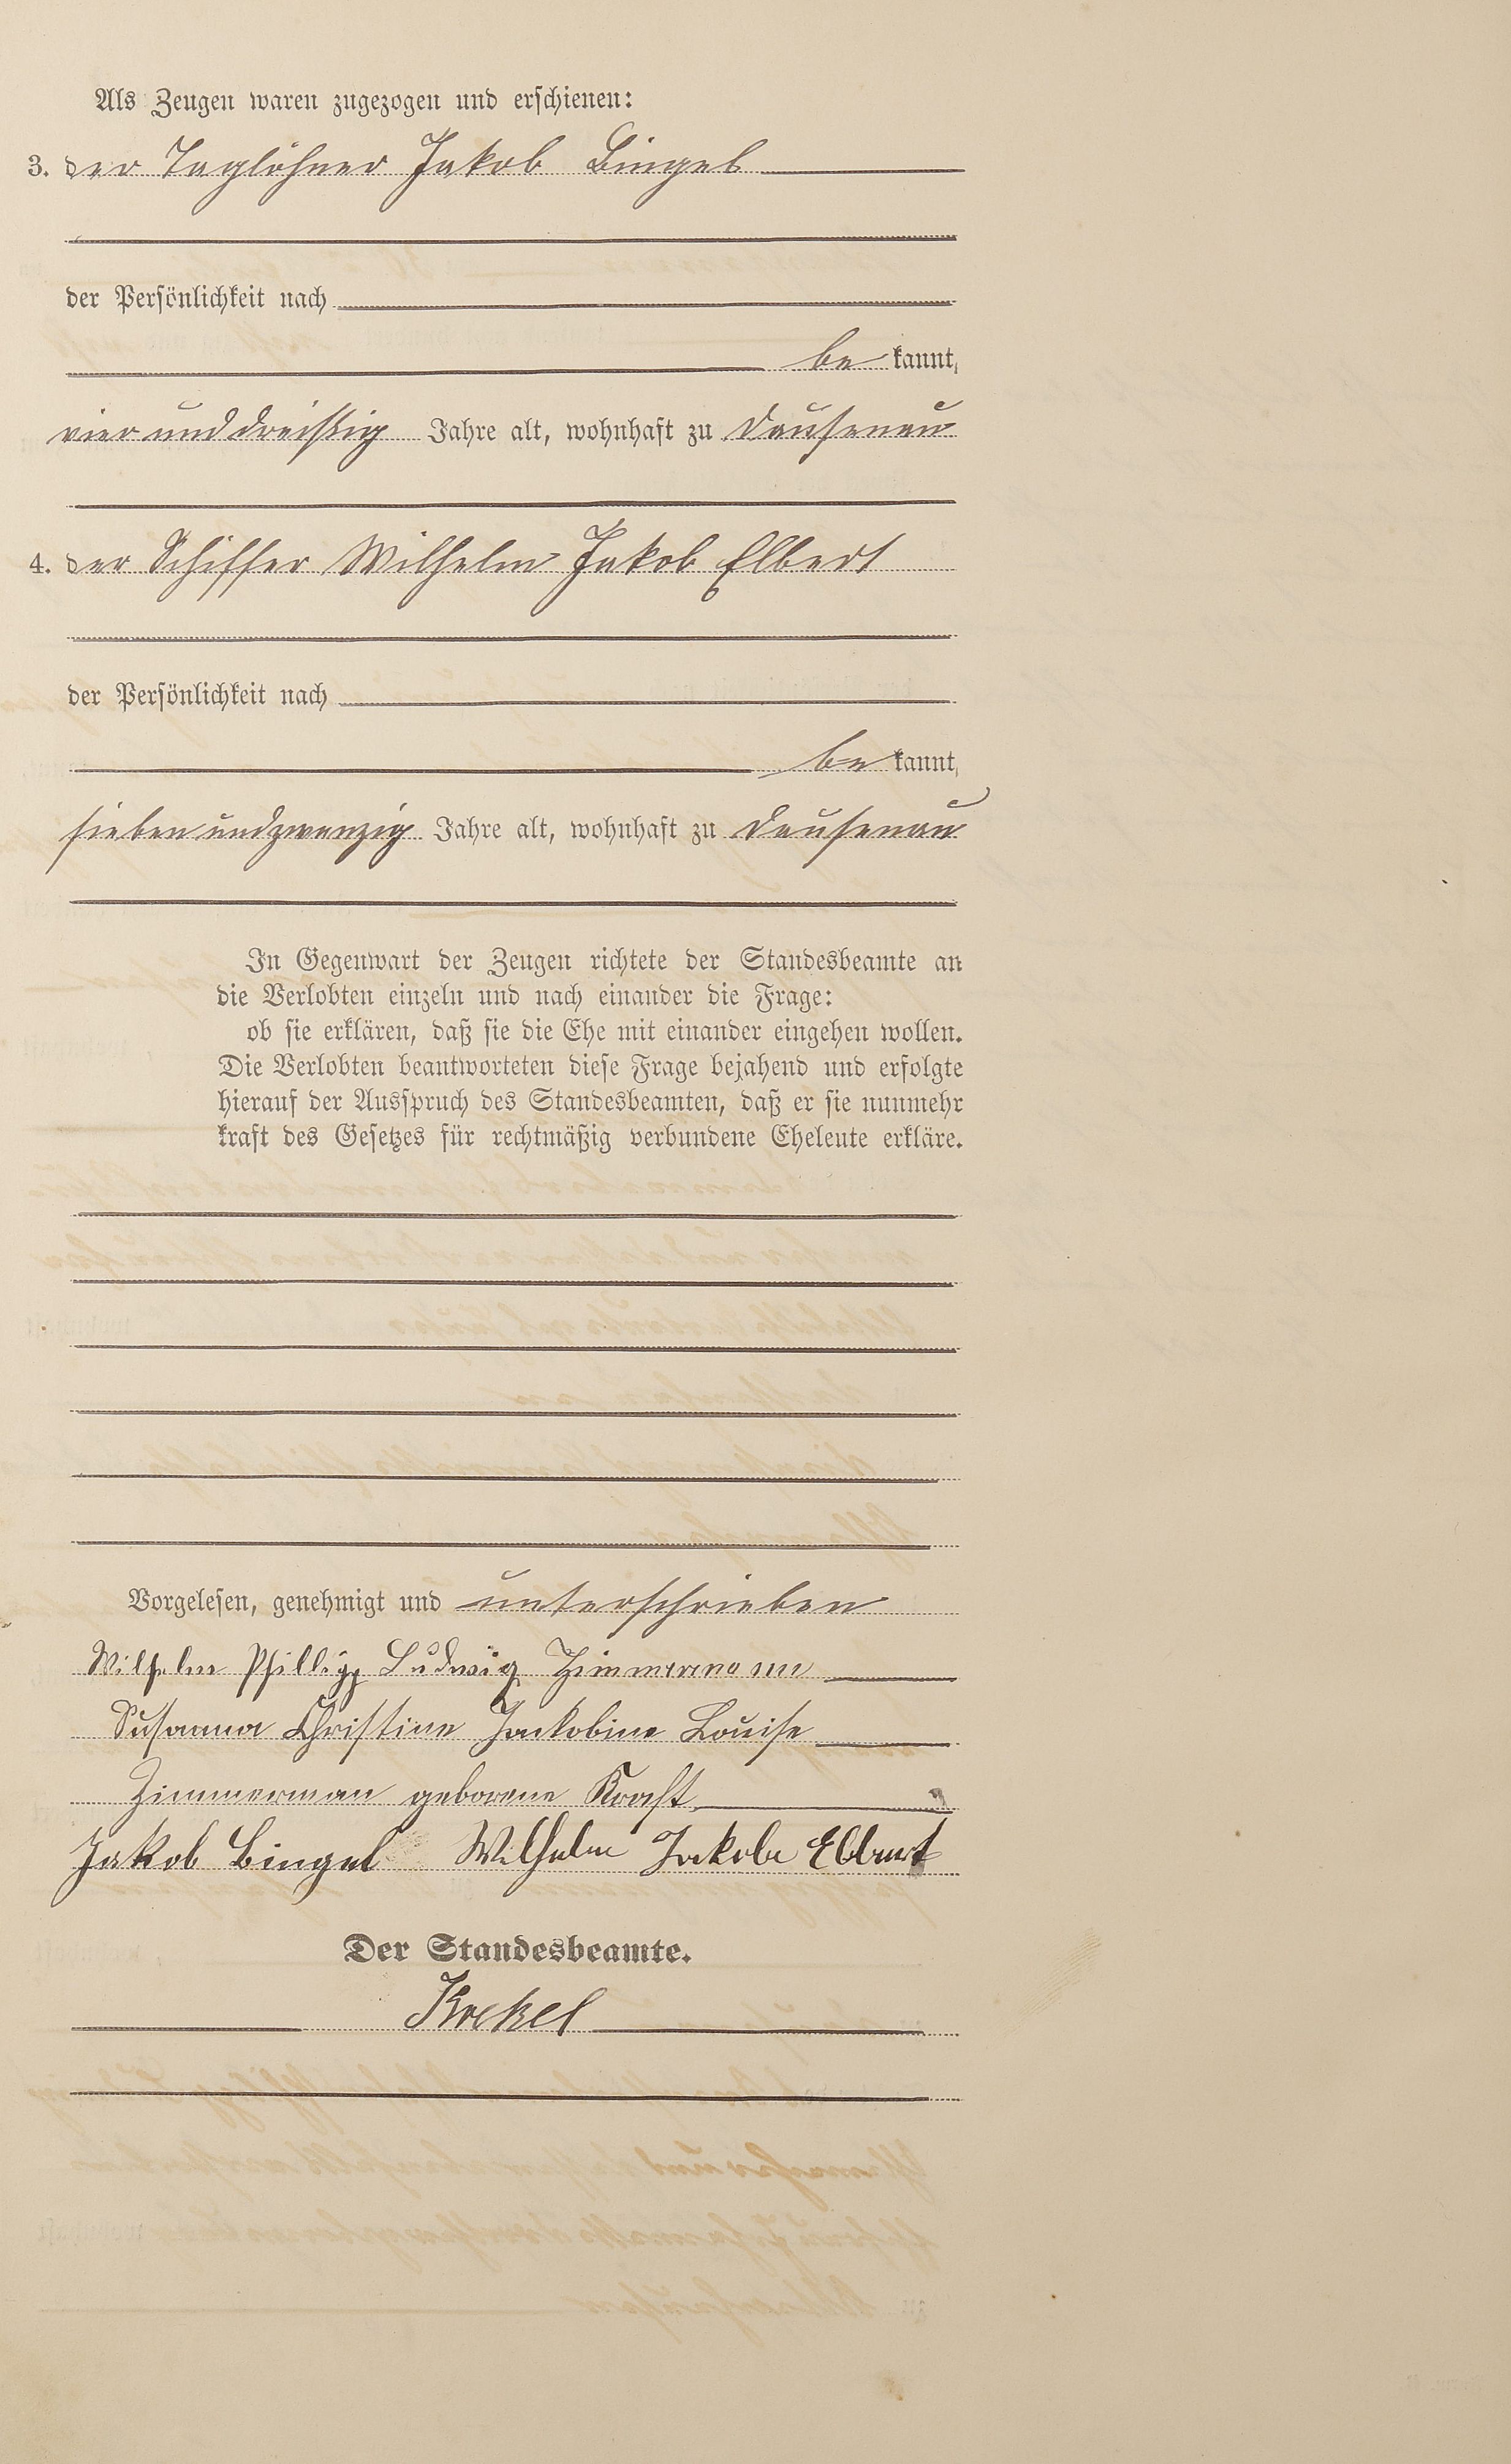 Als Zeugen waren zugezogen und erschienen:
3. der Taglöhner Jakob Bingel
der Persönlichkeit nach
be kannt,
vierunddreißig Jahre alt, wohnhaft zu Dausenau
4. der Schiffer Wilhelm Jakob Elbert
der Persönlichkeit nach
be kannt,
siebenundzwanzig Jahre alt, wohnhaft zu Dausenau
In Gegenwart der Zeugen richtete der Standesbeamte an
die Verlobten einzeln und nach einander die Frage:
ob sie erklären, daß sie die Ehe mit einander eingehen wollen.
Die Verlobten beantworteten diese Frage bejahend und erfolgte
hierauf der Ausspruch des Standesbeamten, daß er sie nunmehr
kraft des Gesetzes für rechtmäßig verbundene Eheleute erkläre.
Vorgelesen, genehmigt und unterschrieben
Wilhelm Phillipp Ludwig Zimmermann
Susanna Christine Jackobine Louise
Zimmerman geborene Kraft
Jakob Bingel Wilhelm Jakob Elbert
Der Standesbeamte.
Krekel